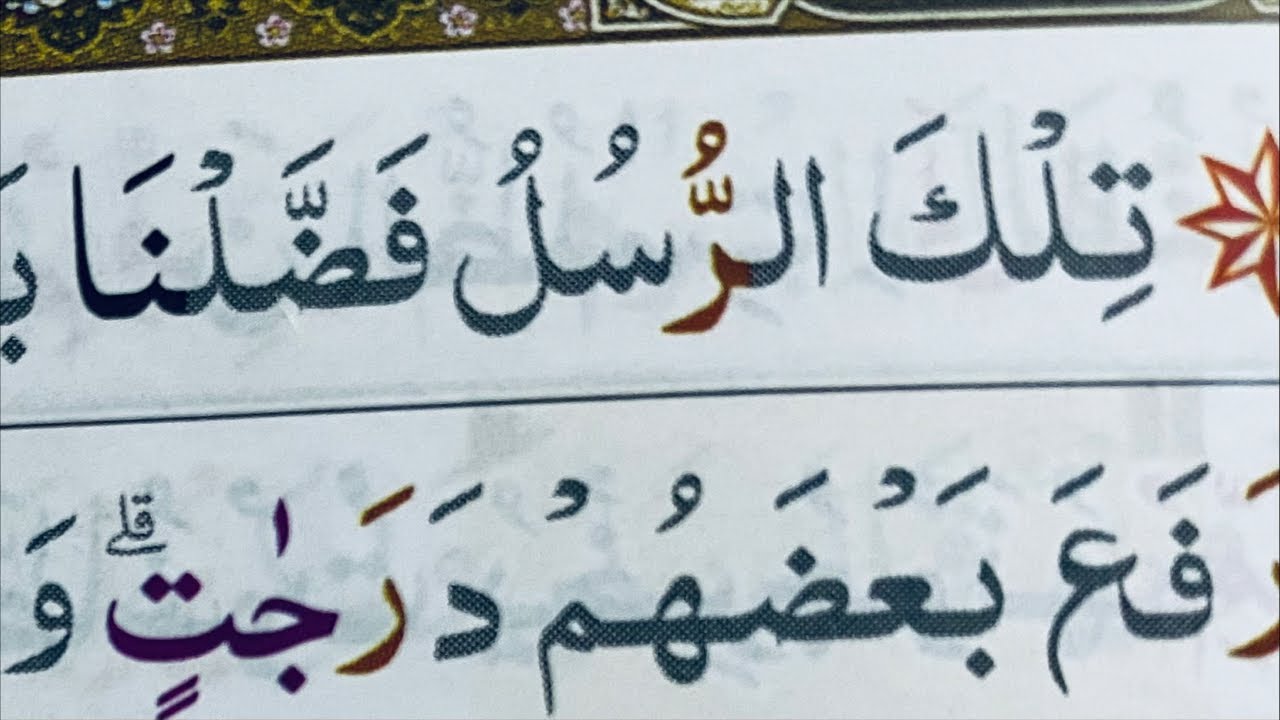 تِلْكَ الرُّسُلُ فَضَّلْنَا
رَفَعَ بَعْضَهُمْ دَرَجٰتٍ ۗ وَ